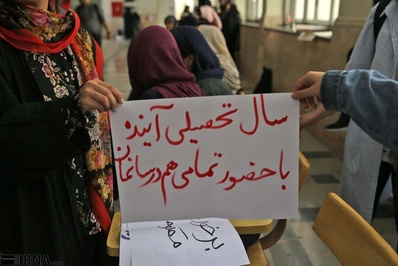 سال تحصیلی آینده
با حضور تمامی هم‌درسانمان
IRNA